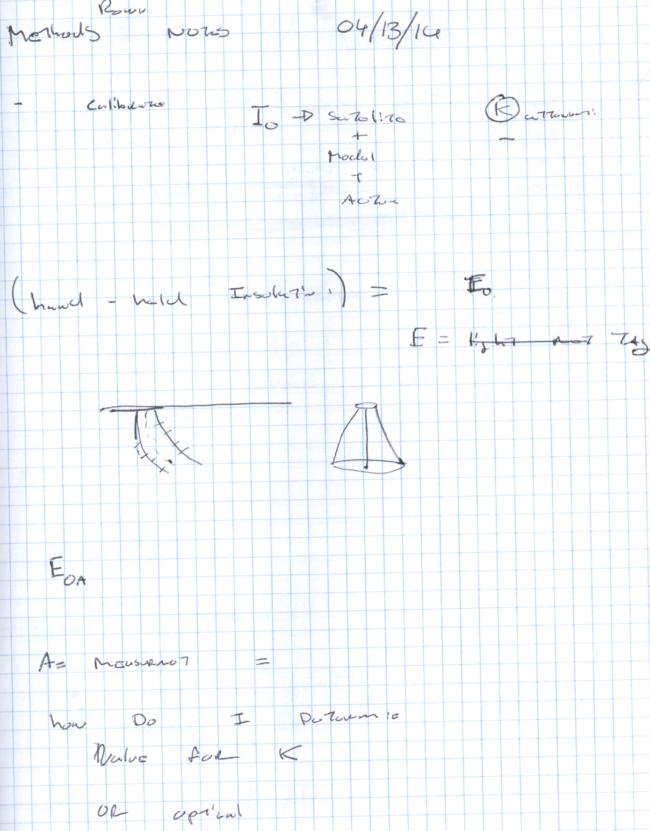 Methods Notes 04/13/14
- Calibrate I₀ → Satelite K
+
Model
+
(hand - held Insolation) = E₀
E = Light Tag
E_OA
A = Measurement =
how Do I Determine
value for K
OR optical